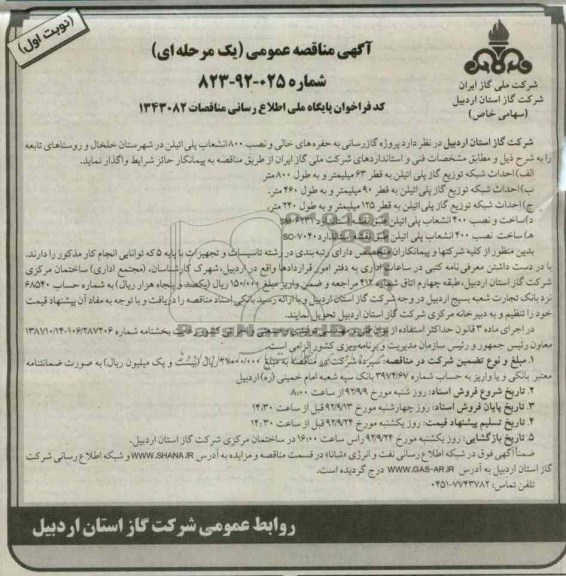 (نوبت اول)
آگهی مناقصه عمومی (یک مرحله ای)
شماره ۰۲۵-۹۲-۸۲۳
کد فراخوان پایگاه ملی اطلاع رسانی مناقصات ۱۳۴۳۰۸۲
شرکت ملی گاز ایران
شرکت گاز استان اردبیل
(سهامی خاص)
شرکت گاز استان اردبیل در نظر دارد پروژه گازرسانی به حفره های خالی و نصب ۸۰۰ انشعاب پلی اتیلن در شهرستان خلخال و روستاهای تابعه
را به شرح ذیل و مطابق مشخصات فنی و استانداردهای شرکت ملی گاز ایران از طریق مناقصه به پیمانکار حائز شرایط واگذار نماید.
الف) احداث شبکه توزیع گاز پلی اتیلن به قطر ۶۳ میلیمتر و به طول ۸۰۰ متر
ب) احداث شبکه توزیع گاز پلی اتیلن به قطر ۹۰ میلیمتر و به طول ۴۶۰ متر.
ج) احداث شبکه توزیع گاز پلی اتیلن به قطر ۱۲۵ میلیمتر و به طول ۲۴۰ متر.
د) ساخت و نصب ۴۰۰ انشعاب پلی اتیلن طبق نقشه استاندارد SM-۶۲۳۱
ه) ساخت نصب ۴۰۰ انشعاب پلی اتیلن طبق نقشه استاندارد SC-۷۰۴۰
بدین منظور از کلیه شرکتها و پیمانکاران متخصص دارای رتبه بندی در رشته تاسیسات و تجهیزات با پایه ۵ که توانایی انجام کار مذکور را دارند،
با در دست داشتن معرفی نامه کتبی در ساعات اداری به دفتر امور قراردادها واقع در اردبیل، شهرک کارشناسان، (مجتمع اداری) ساختمان مرکزی
شرکت گاز استان اردبیل، طبقه چهارم اتاق شماره ۴۱۲ مراجعه و ضمن واریز مبلغ ۱۵۰/۰۰۰ ریال (یکصد و پنجاه هزار ریال) به شماره حساب ۶۸۵۴۰
نزد بانک تجارت شعبه بسیج اردبیل در وجه شرکت گاز استان اردبیل و با ارائه رسید بانکی اسناد مناقصه را دریافت و با توجه به مفاد آن پیشنهاد قیمت
خود را تنظیم و به دبیرخانه مرکزی شرکت گاز استان اردبیل تحویل نمایند.
در اجرای ماده ۳ قانون حداکثر استفاده از توان فنی کشور رعایت بخشنامه شماره ۱۳۸۱۷۱۰/۱۴-۱۰۶/۲۸۷۲۰۶
معاون رئیس جمهور و رئیس سازمان مدیریت و برنامه ریزی کشور الزامی است.
۱. مبلغ و نوع تضمین شرکت در مناقصه: سپرده شرکت در مناقصه به مبلغ ۲۱/۰۰۰/۰۰۰ ریال (بیست و یک میلیون ریال) به صورت ضمانتنامه
معتبر بانکی و یا واریز به حساب شماره ۳۹۷۴/۶۷ بانک سپه شعبه امام خمینی (ره) اردبیل
۲. تاریخ شروع فروش اسناد: روز شنبه مورخ ۹۲/۹/۹ از ساعت ۸:۰۰
۳. تاریخ پایان فروش اسناد: روز چهارشنبه مورخ ۹۲/۹/۱۳ قبل از ساعت ۱۴:۳۰
۴. تاریخ تسلیم پیشنهاد قیمت: روز یکشنبه مورخ ۹۲/۹/۲۴ قبل از ساعت ۱۴:۳۰
۵. تاریخ بازگشایی: روز یکشنبه مورخ ۹۲/۹/۲۴ راس ساعت ۱۶:۰۰ در ساختمان مرکزی شرکت گاز استان اردبیل.
ضمناً آگهی فوق در شبکه اطلاع رسانی نفت و انرژی «شانا» در قسمت مناقصه و مزایده به آدرس WWW.SHANA.IR و شبکه اطلاع رسانی شرکت
گاز استان اردبیل به آدرس WWW.GAS-AR.IR درج گردیده است.
تلفن تماس: ۷۷۴۳۷۸۲-۰۴۵۱
روابط عمومی شرکت گاز استان اردبیل